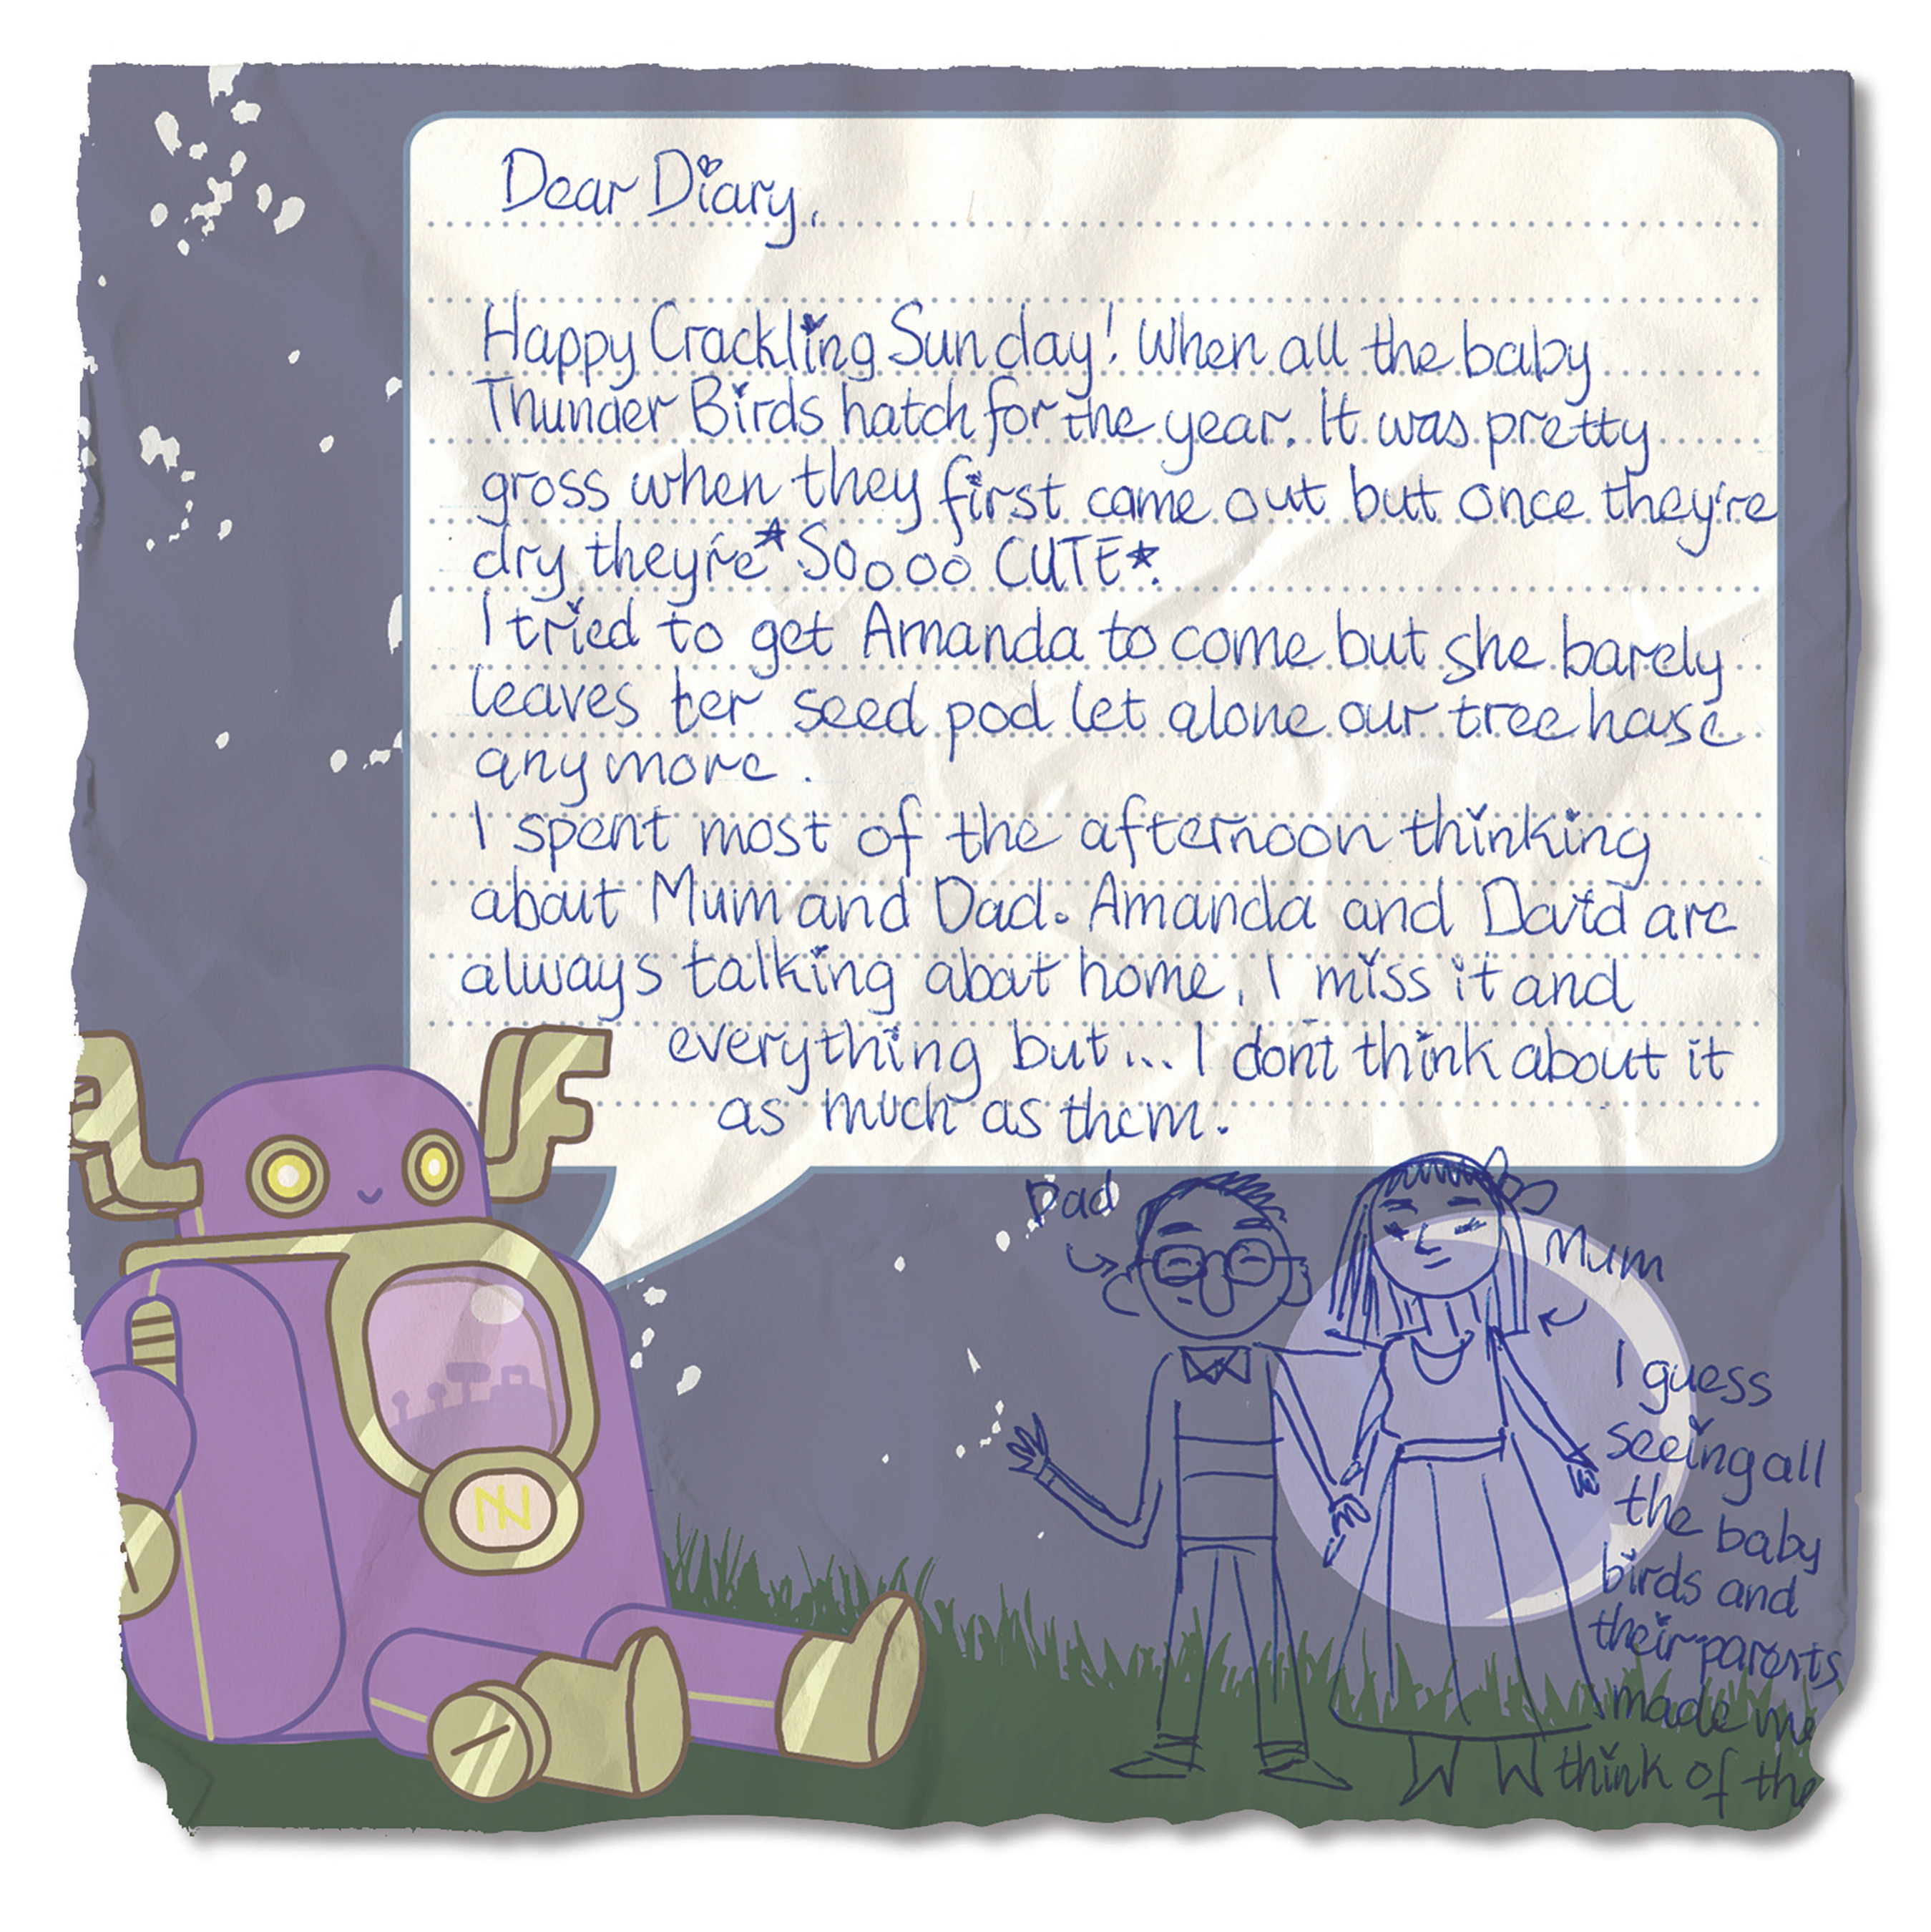 Dear Diary,
Happy Crackling Sunday! When all the baby
Thunder Birds hatch for the year. It was pretty
gross when they first came out but once they're
dry they're *SOoooo CUTE*.
I tried to get Amanda to come but she barely
leaves her seed pod let alone our tree house
anymore.
I spent most of the afternoon thinking
about Mum and Dad. Amanda and David are
always talking about home, I miss it and
everything but... I don't think about it
as much as them.
Dad
Mum
I guess
seeing all
the baby
birds and
their parents
made me
think of the
N